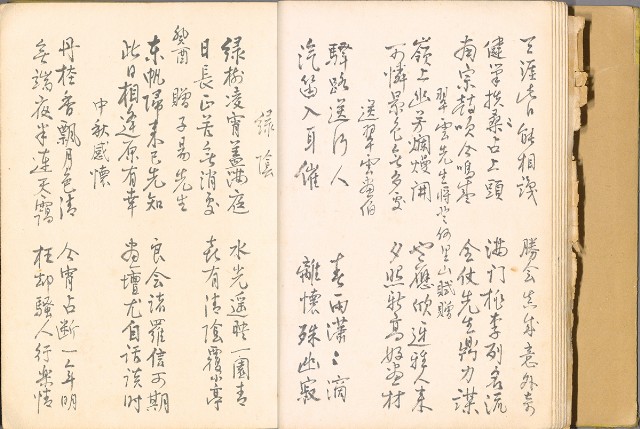 天涯此日能相識 勝會真成意外奇
健筆扶桑占上頭 滿門桃李列名流
南宗鼓吹今鳴盛 合仗先生鼎力謀
翠雲先生將登何里山賦贈
嶺上幽芳爛熳開 也應欣迓雅人來
可憐景色 夕照新高好畫材
送翠雲畫伯
驛路送行人 春雨瀟瀟滴
汽笛入耳催 離懷殊幽寂
綠陰
綠樹凌霄蓋滿庭 水光遥映一園青
日長正苦無消處 喜有清陰覆小亭
癸酉 贈子易先生
東帆歸來已先知 良会諸羅信可期
此日相逢原有幸 畫壇尤自話談時
中秋感懷
丹桂香飄月色清 今宵占斷一年明
無端夜半連天靄 枉却騷人行樂情